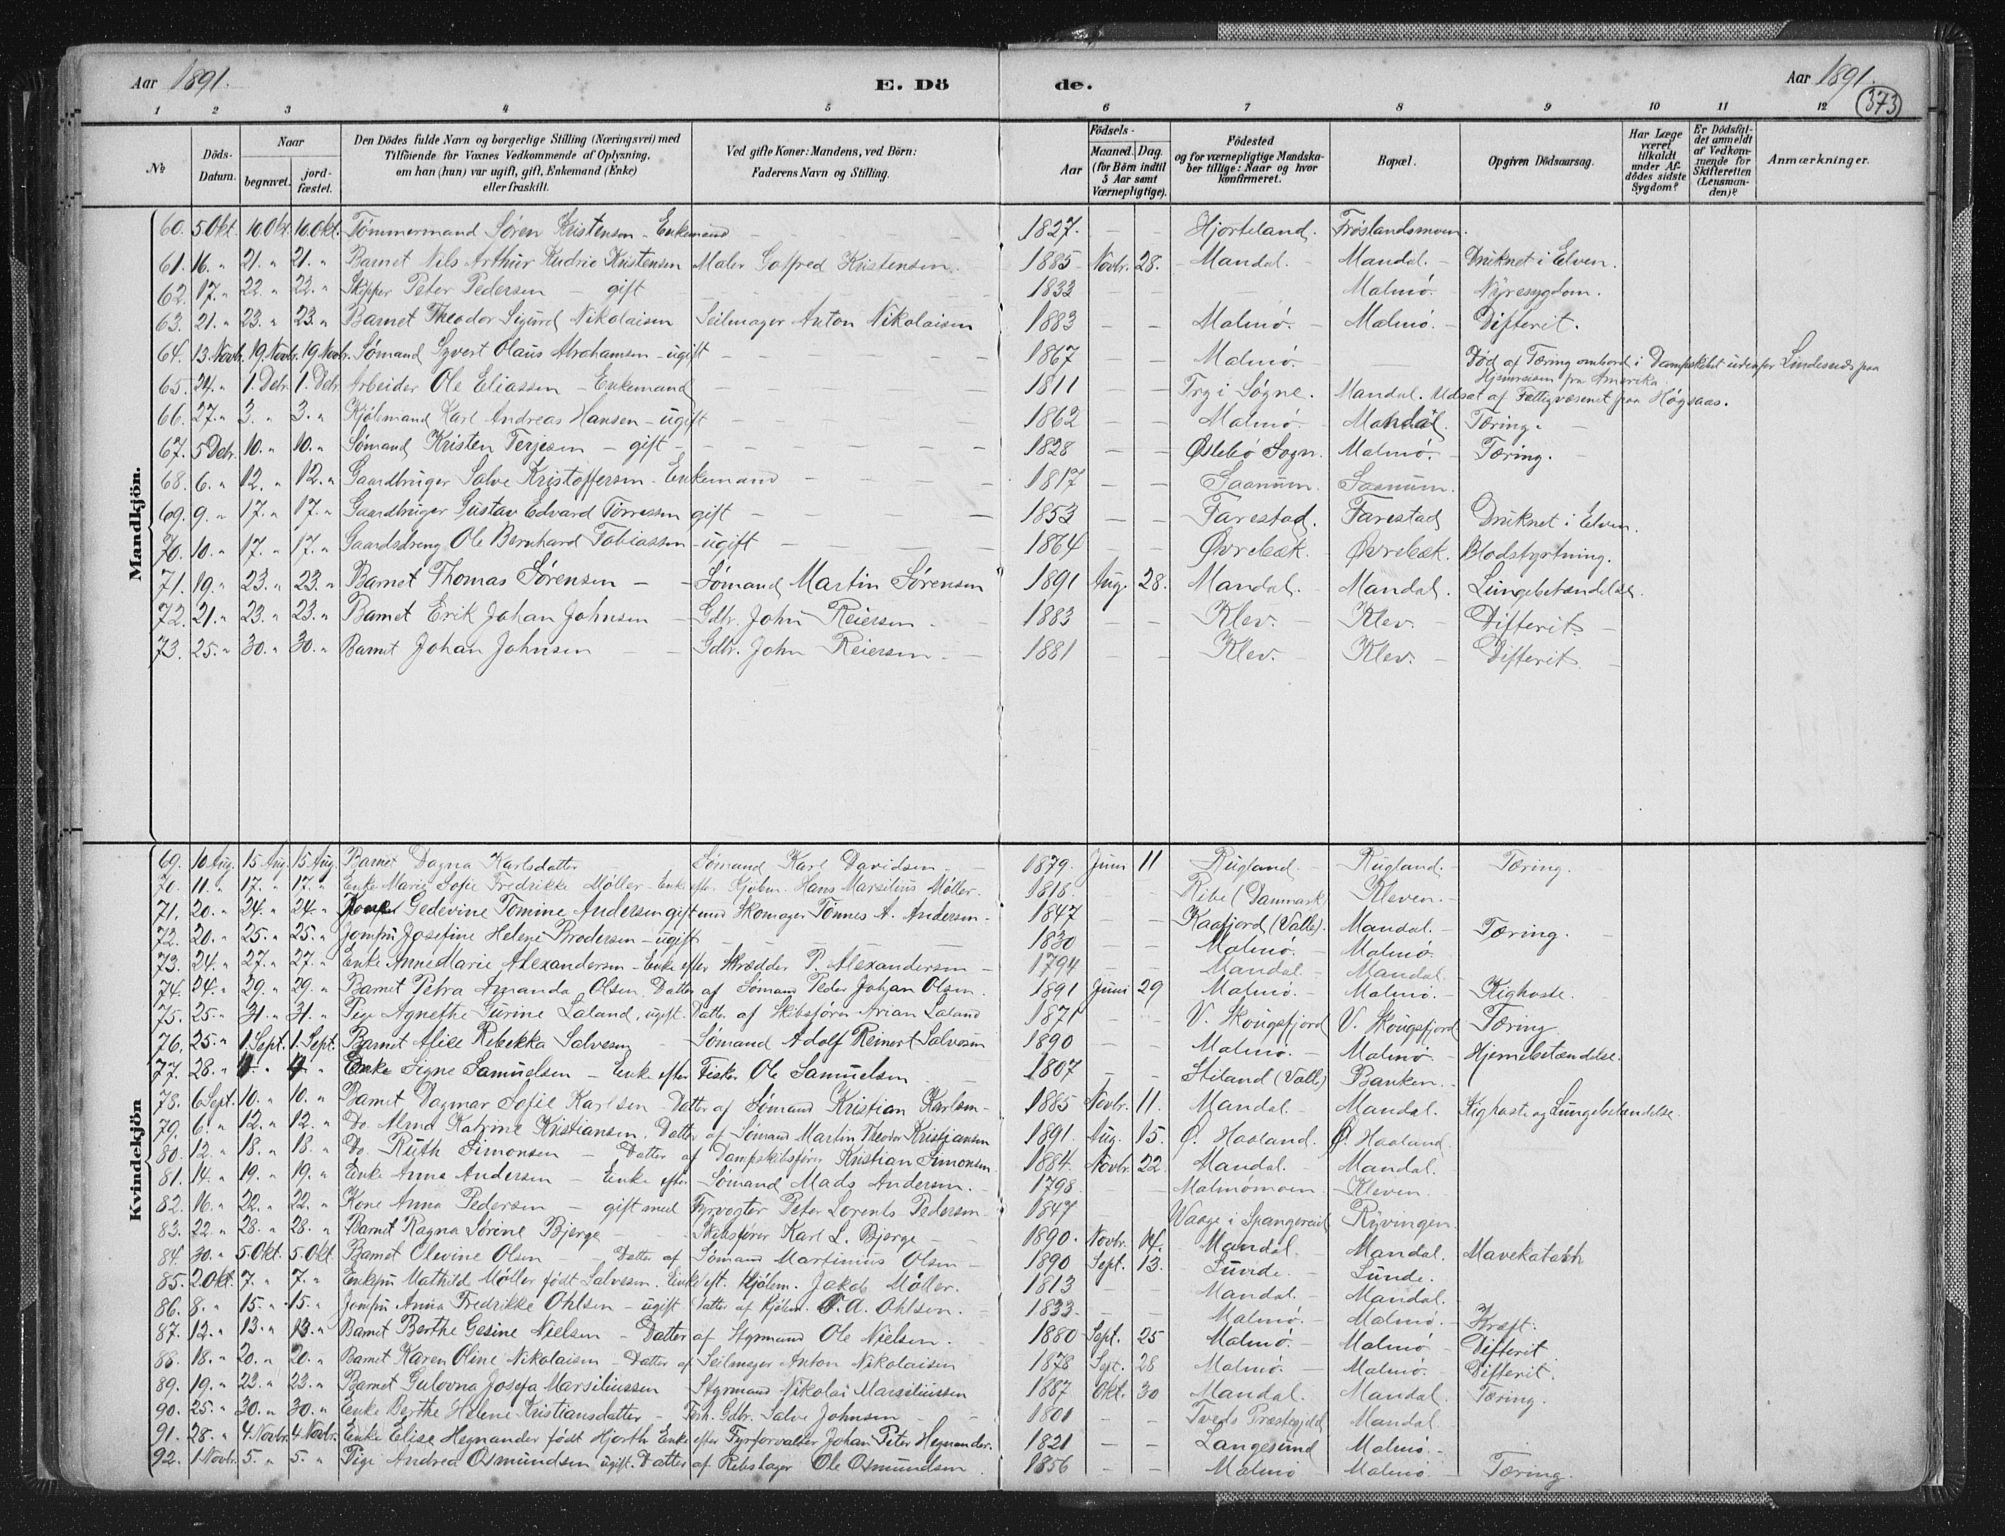 Aar 1891. E. Dö de. Aar 1891.
373
1 2 3 4 5 6 7 8 9 10 11 12
№ Döds-Datum. Naar begravet. jordfæstet. Den Dödes fulde Navn og borgerlige Stilling (Næringsvei) med Tilföiende for Voxnes Vedkommende af Oplysning, om han (hun) var ugift, gift, Enkemand (Enke) eller fraskilt. Ved gifte Koner: Mandens, ved Börn: Faderens Navn og Stilling. Födsels- Aar Maaned. Dag. (for Börn indtil 5 Aar samt Værnepligtige). Födested og for værnepligtige Mandskaber tillige: Naar og hvor konfirmeret. Bopæl. Opgiven Dödsaarsag. Har Læge været tilkaldt under Afdödes sidste Sygdom? Er Dödsfaldet anmeldt af Vedkommende for Skifteretten (Lensmanden)? Anmærkninger.
Mandkjön.
60. 5 Okt. 10 Okt. 10 Okt. Tømmermand Søren Kristensen - Enkemand 1827. Hjorteland. Frøslandsmoen.
61. 16. " 21. " 21. " Barnet Nils Arthur Kristensen Maler Kristensen. 1885 Novbr. 28. Mandal. Mandal. Druknet i Elven.
62. 17. " 22. " 22. " Skipper Peter Pedersen - gift 1833 Malmö. Nyresygdom.
63. 21. " 23. " 23. " Barnet Theodor Sigurd Nikolaisen Seilmager Anton Nikolaisen 1883 Malmö. Malmö. Difterit.
64. 13 Novb. 19. Novbr. 19 Novbr. Sømand Syvert Olaus Abrahamsen - ugift 1867 Malmö. Død af Tæring ombord i Dampskibet udenfor Lindesnes paa Hjemreisen fra Amerika.
65. 24. " 1. Debr. 1. Debr. Arbeider Ole Eliassen - Enkemand 1811 Try i Søgne. Mandal. Udsat af Fattigvæsenet paa Høgsaas.
66. 27. " 3. " 3. " Kjøbmand Karl Andreas Hansen - ugift 1862 Malmö. Mandal. Tæring.
67. 5 Debr. 10. " 10. " Sømand Kristen Terjesen - gift 1828 Øslebø Sogn. Malmö. Tæring.
68. 6. " 12. " 12. " Gaardbruger Salve Kristoffersen - Enkemand 1817 Saanum. Saanum.
69. 9. " 17. " 17. " Gaardbruger Gustav Edvard Tørressen gift 1853 Farestad. Farestad Druknet i Elven.
70. 10. " 17. " 17. " Gaardsdreng Ole Bernhard Tobiassen - ugift 1864 Øvrebæk. Øvrebæk. Blodstyrtning.
71. 19. " 23. " 23. " Barnet Thomas Sørensen Sømand Martin Sørensen 1891 Aug. 28. Mandal. Mandal. Lungebetændelse.
72. 21. " 23. " 23. " Barnet Erik Johan Johnsen Gdbr. John Reiersen. 1883 Klev. Klev. Difterit.
73. 25. " 30. " 30. " Barnet Johan Johnsen Gdbr. John Reiersen. 1881 Klev. Klev. Difterit.
Kvindekjön
69. 10 Aug. 15 Aug. 15 Aug. Barnet Dagna Karlsdatter Sømand Karl Davidsen 1879. Juni 11 Rugland. Rugland. Tæring.
70. 11. " 17. " 17. " Enke Marie Sofie Fredrikke Møller - Enke efter Kjøbm. Hans Marsilius Møller. 1818. Ribe (Danmark) Kleven.
71. 20. " 24. " 24. " Kone Gedevine Tomine Andersen gift med Skomager Tønnes A. Andersen. 1847 Kaafjord (Valle). Mandal. Tæring.
72. 20. " 25. " 25. " Jomfru Josefine Helene Brodersen - ugift 1830 Malmö. Malmö.
73. 24. " 27. " 27. " Enke Anne Marie Alexandersen - Enke efter Skrædder P. Alexandersen 1794 Mandal. Mandal.
74. 24. " 29. " 29. " Barnet Petra Amanda Olsen. Datter af Sømand Peder Johan Olsen. 1891 Juni 29 Malmö. Malmö. Kighoste.
75. 25. " 31. " 31. " Pige Agnethe Gurine Laland, ugift. Datter af Skibsfører Arian Laland 1871 V. Skougsfjord V. Skougsfjord Tæring
76. 25. " 1 Sept. 1. Sept. Barnet Alice Rebekka Salvesen Sømand Adolf Reinert Salvesen 1890 Malmö. Malmö. Hjernebetændelse.
77. 28. " 4. " 4. " Enke Signe Samuelsen - Enke efter Fisker Ole Samuelsen 1807 Stiland (Valle) Banken.
78. 6 Sept. 10. " 10. " Barnet Dagmar Sofie Karlsen - Datter af Sømand Kristian Karlsen 1885 Novbr. 11. Mandal. Mandal. Kighoste og Lungebetændelse.
79. 6. " 12. " 12. " Do. Alma Katrine Kristiansen. Datter af Sømand Martin Theodor Kristiansen 1891. Aug. 15. Ø. Haaland. Ø. Haaland.
80. 12. " 18. " 18. " Do. Ruth Simonsen - Datter af Dampskibsfører Kristian Simonsen 1884. Novbr. 22. Mandal. Mandal.
81. 14. " 19. " 19. " Enke Anna Andersen - Enke efter Sømand Mads Andersen. 1798. Malmömoen. Kleven.
82. 16. " 22. " 22. " Kone Anna Pedersen - gift med Fyrvogter Peter Lorents Pedersen 1847 Vaage i Spangereid Ryvingen.
83. 22. " 28. " 28. " Barnet Ragna Sørine Bjerge Skibsfører Karl L. Bjerge 1890. Novbr. 14. Mandal. Mandal. Mavekatarrh
84. 30. " 5. Okt. 5. Okt. Barnet Olevine Olsen Datter af Sømand Martinius Olsen 1890 Sept. 13. Lunde. Lunde.
85. 2 Okt. 7. " 7. " Enkefru Mathild Møller født Salvesen. Enke eft. Kjøbm. Jakob Møller. 1813 Mandal. Mandal.
86. 8. " 15. " 15. " Jomfru Anna Fredrikke Ohlsen - ugift Datter af Kjøbm. O. A. Ohlsen. 1833. Malmö. Malmö. Kræft.
87. 12. " 13. " 13. " Barnet Berthe Gesine Nielsen - Datter af Styrmand Ole Nielsen. 1880 Sept. 25 Malmö. Malmö. Difterit
88. 18. " 20. " 20. " Barnet Karen Oline Nikolaisen - Datter af Seilmager Anton Nikolaisen 1878 Sept. 28 Malmö. Malmö. Difterit.
89. 19. " 23. " 23. " Barnet Gulovna Josefa Marsiliussen Styrmand Nikolai Marsiliussen 1887 Okt. 30 Mandal. Mandal. Tæring.
90. 25. " 30. " 30. " Enke Berthe Helene Kristiansdatter - Forh. Gdbr. Salve Johnsen 1801 Tveds Præstegjeld Mandal.
91. 28. " 4 Novbr. 4 Novbr. Enke Elise Hegnander født Hjorth Enke efter Fyrforvalter Johan Peter Hegnander. 1821 Langesund Malmö.
92. 1 Novbr. 5. " 5. " Pige Andrea Osmundsen ugift. Datter af Rebslager Ole Osmundsen 1856 Malmö Malmö. Tæring.